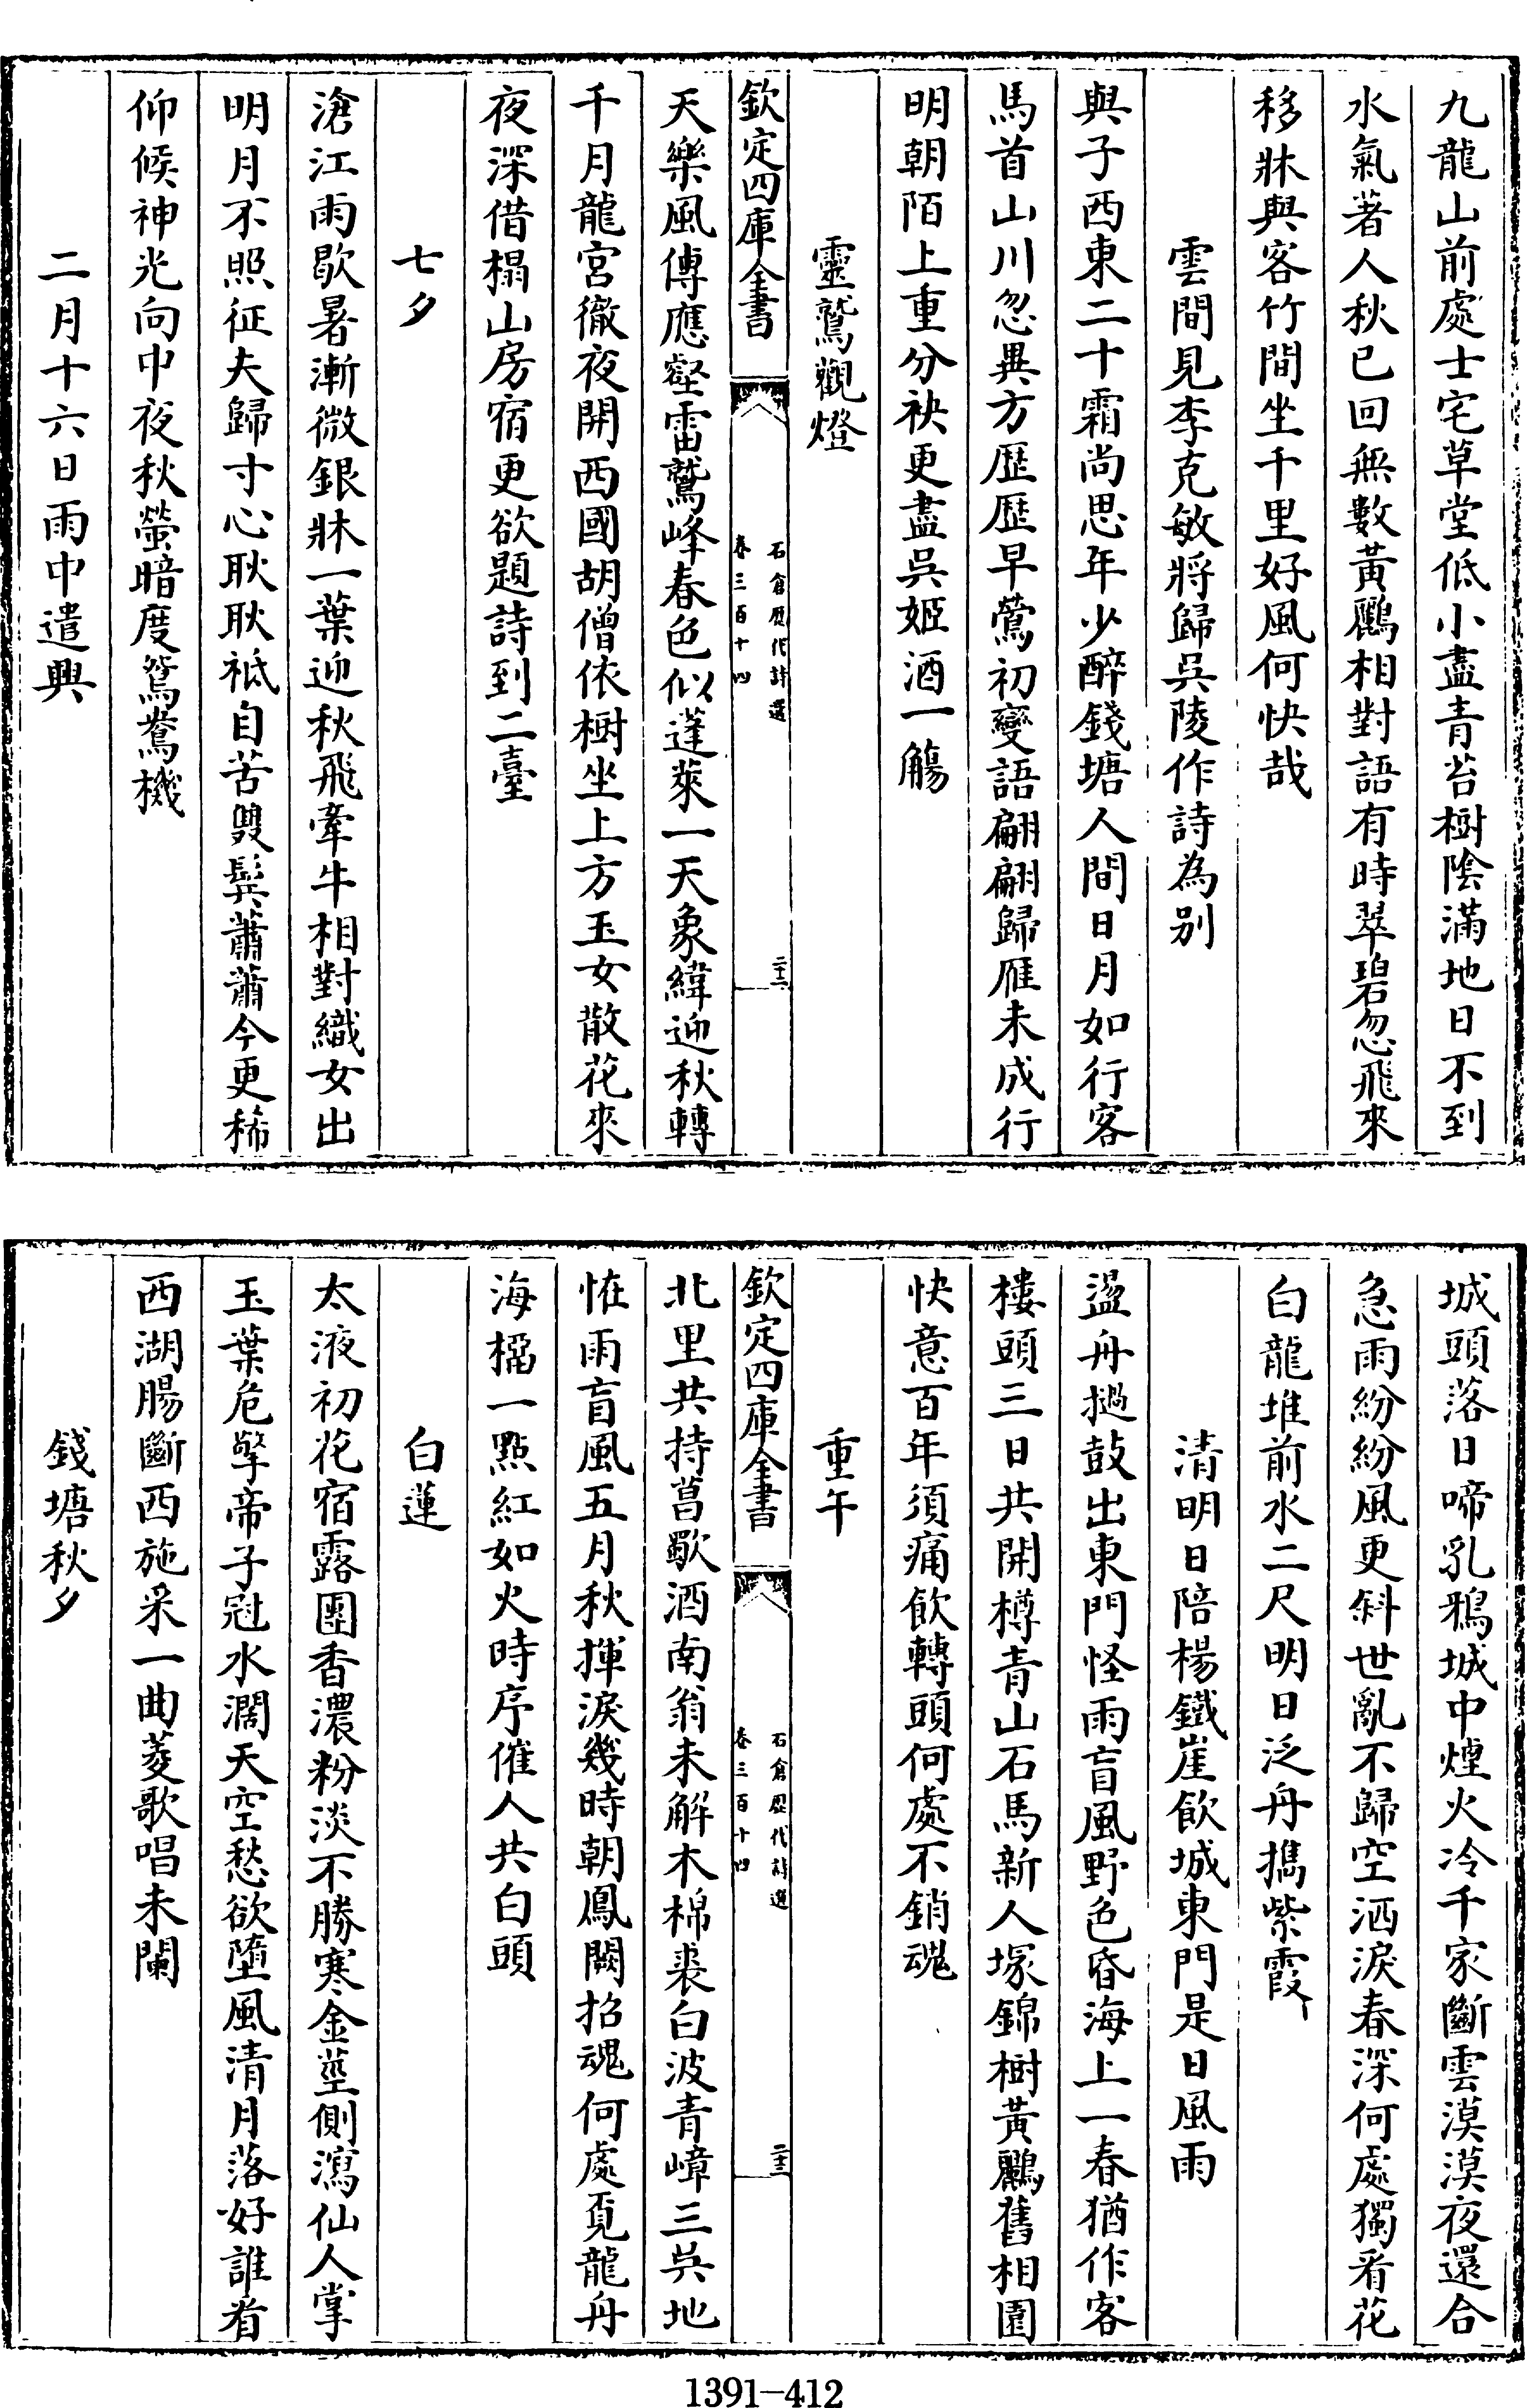 九龍山前處士宅草堂低小盡青苔樹陰滿地日不到
水氣著人秋已回無數黃鸝相對語有時翠碧忽飛來
移牀與客竹間坐千里好風何快哉
雲間見李克敏將歸吳陵作詩為别
與子西東二十霜尚思年少醉錢塘人間日月如行客
馬首山川忽異方歷歷早鶯初變語翩翩歸雁未成行
明朝陌上重分袂更盡吳姬酒一觴
靈鷲觀燈
欽定四庫全書
石倉歷代詩選
卷三百十四
二十二
天樂風傳應壑雷鷲峰春色似蓬萊一天象緯迎秋轉
千月龍宮徹夜開西國胡僧依樹坐上方玉女散花來
夜深借榻山房宿更欲題詩到二臺
七夕
滄江雨歇暑漸微銀牀一葉迎秋飛牽牛相對織女出
明月不照征夫歸寸心耿耿祗自苦雙鬂蕭蕭今更稀
仰候神光向中夜秋螢暗度鴛鴦機
二月十六日雨中遣興
城頭落日啼乳鴉城中煙火冷千家斷雲漠漠夜還合
急雨紛紛風更斜世亂不歸空洒淚春深何處獨看花
白龍堆前水二尺明日泛舟擕紫霞
清明日陪楊鐵崖飲城東門是日風雨
盪舟撾鼓出東門怪雨盲風野色昏海上一春猶作客
樓頭三日共開樽青山石馬新人塚錦樹黃鸝舊相園
快意百年須痛飲轉頭何處不銷魂
重午
欽定四庫全書
石倉歷代詩選
卷三百十四
二十三
北里共持菖歜酒南翁未解木棉裘白波青嶂三吳地
恠雨盲風五月秋揮淚幾時朝鳳闕招魂何處覔龍舟
海榴一點紅如火時序催人共白頭
白蓮
太液初花宿露團香濃粉淡不勝寒金莖側瀉仙人掌
玉葉危擎帝子冠水濶天空愁欲墮風清月落好誰看
西湖腸斷西施采一曲菱歌唱未闌
錢塘秋夕
1391—412